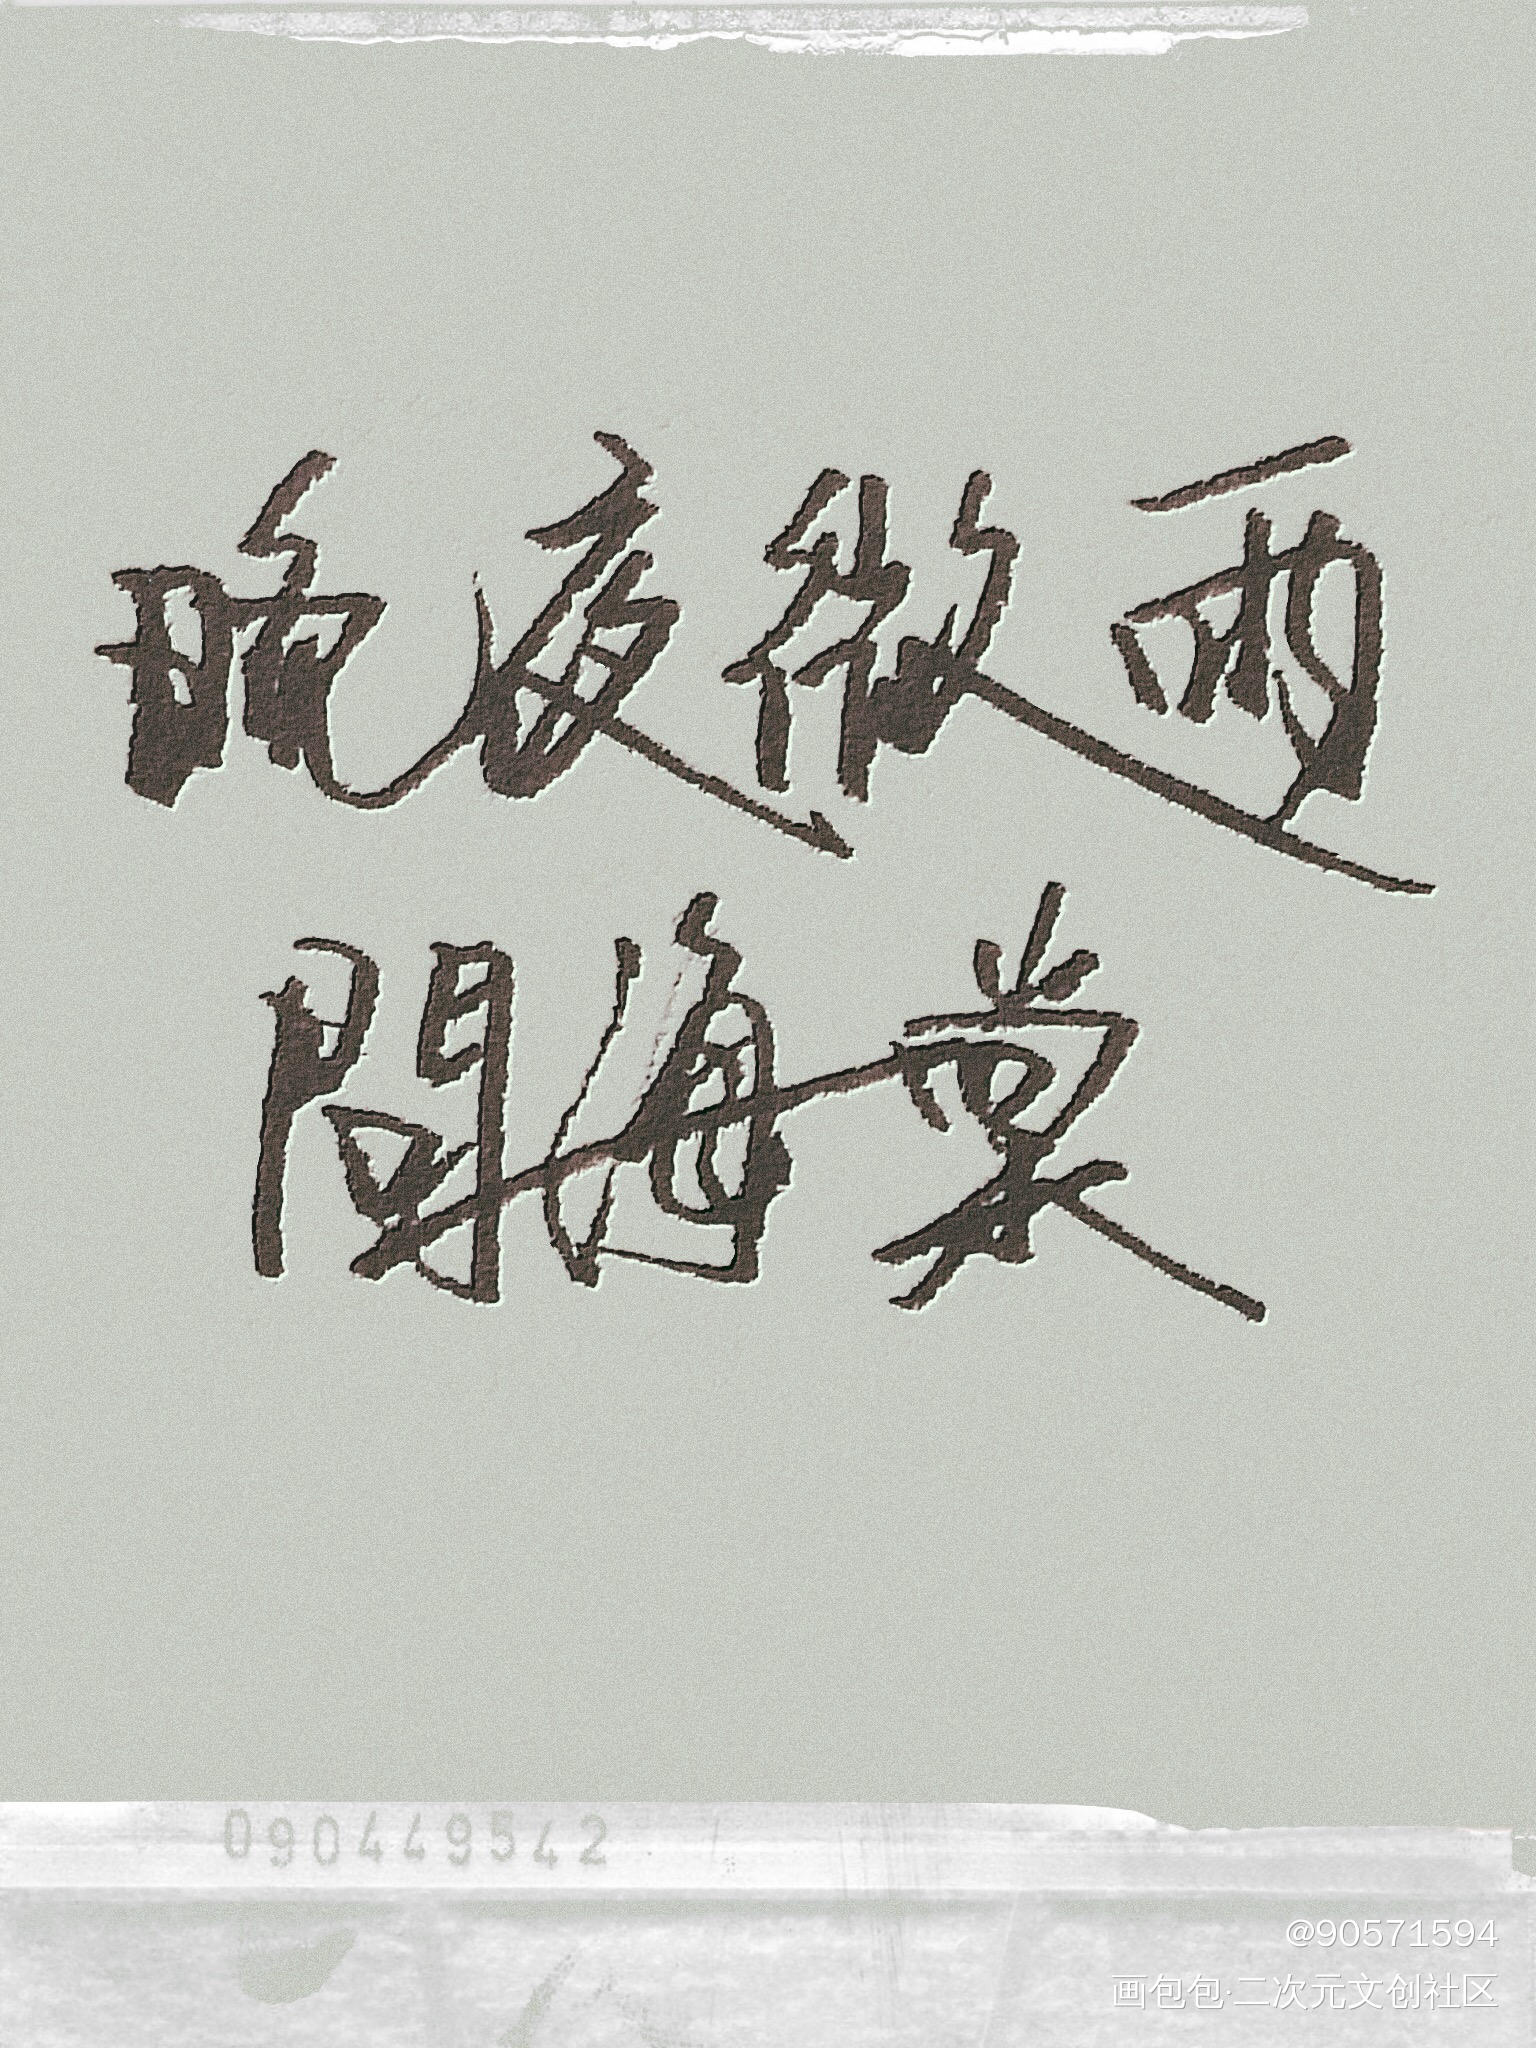 晚夜微雨
問海棠
090449542
@90571594
画包包·二次元文创社区